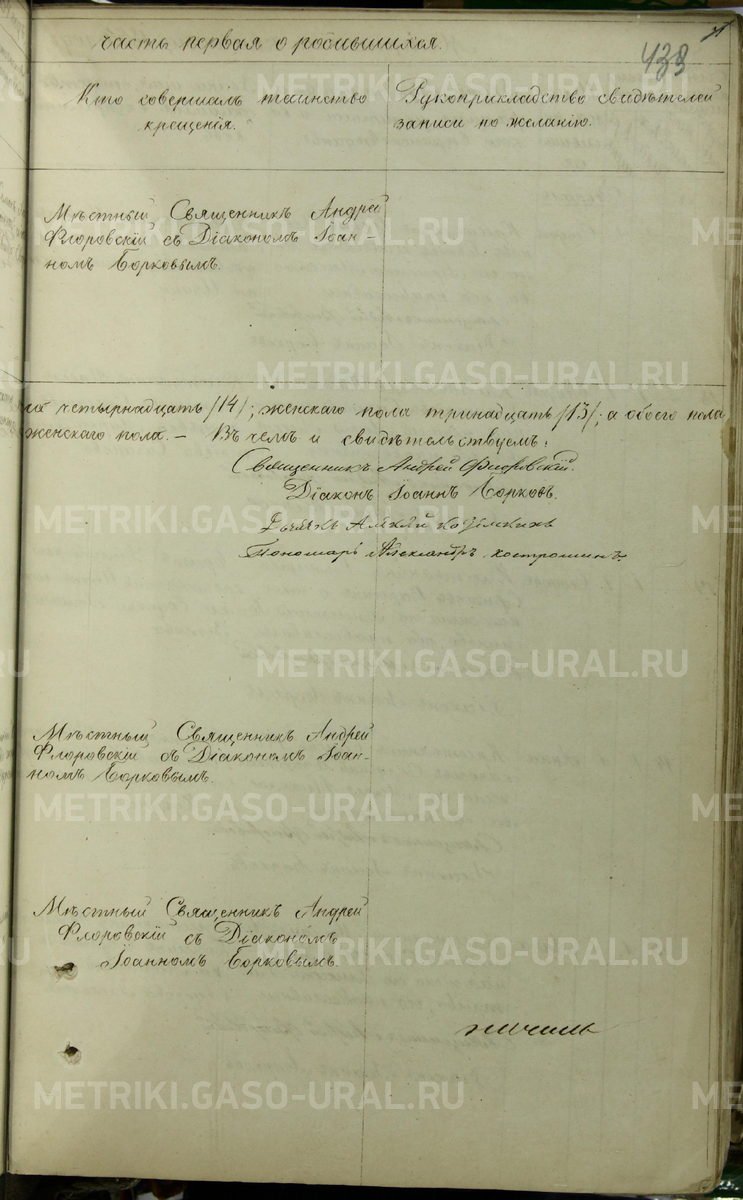 часть первая о родившихся.
433
Кто совершалъ таинство
крещенія.
Рукоприкладство свидѣтелей
записи по желанію.
Мѣстный Священникъ Андрей
Флоровскій съ Діакономъ Іоан-
номъ Борковымъ.
четырнадцать /14/; женскаго пола тринадцать /13/; а обоего пола
женскаго пола. – Въ чемъ и свидѣтельствуемъ:
Священникъ Андрей Флоровскій.
Діаконъ Іоаннъ Борковъ.
Дьячекъ
Пономарь Александръ Костроминъ
Мѣстный Священникъ Андрей
Флоровскій съ Діакономъ Іоан-
номъ Борковымъ.
Мѣстный Священникъ Андрей
Флоровскій съ Діакономъ
Іоанномъ Борковымъ.
METRIKI.GASO-URAL.RU